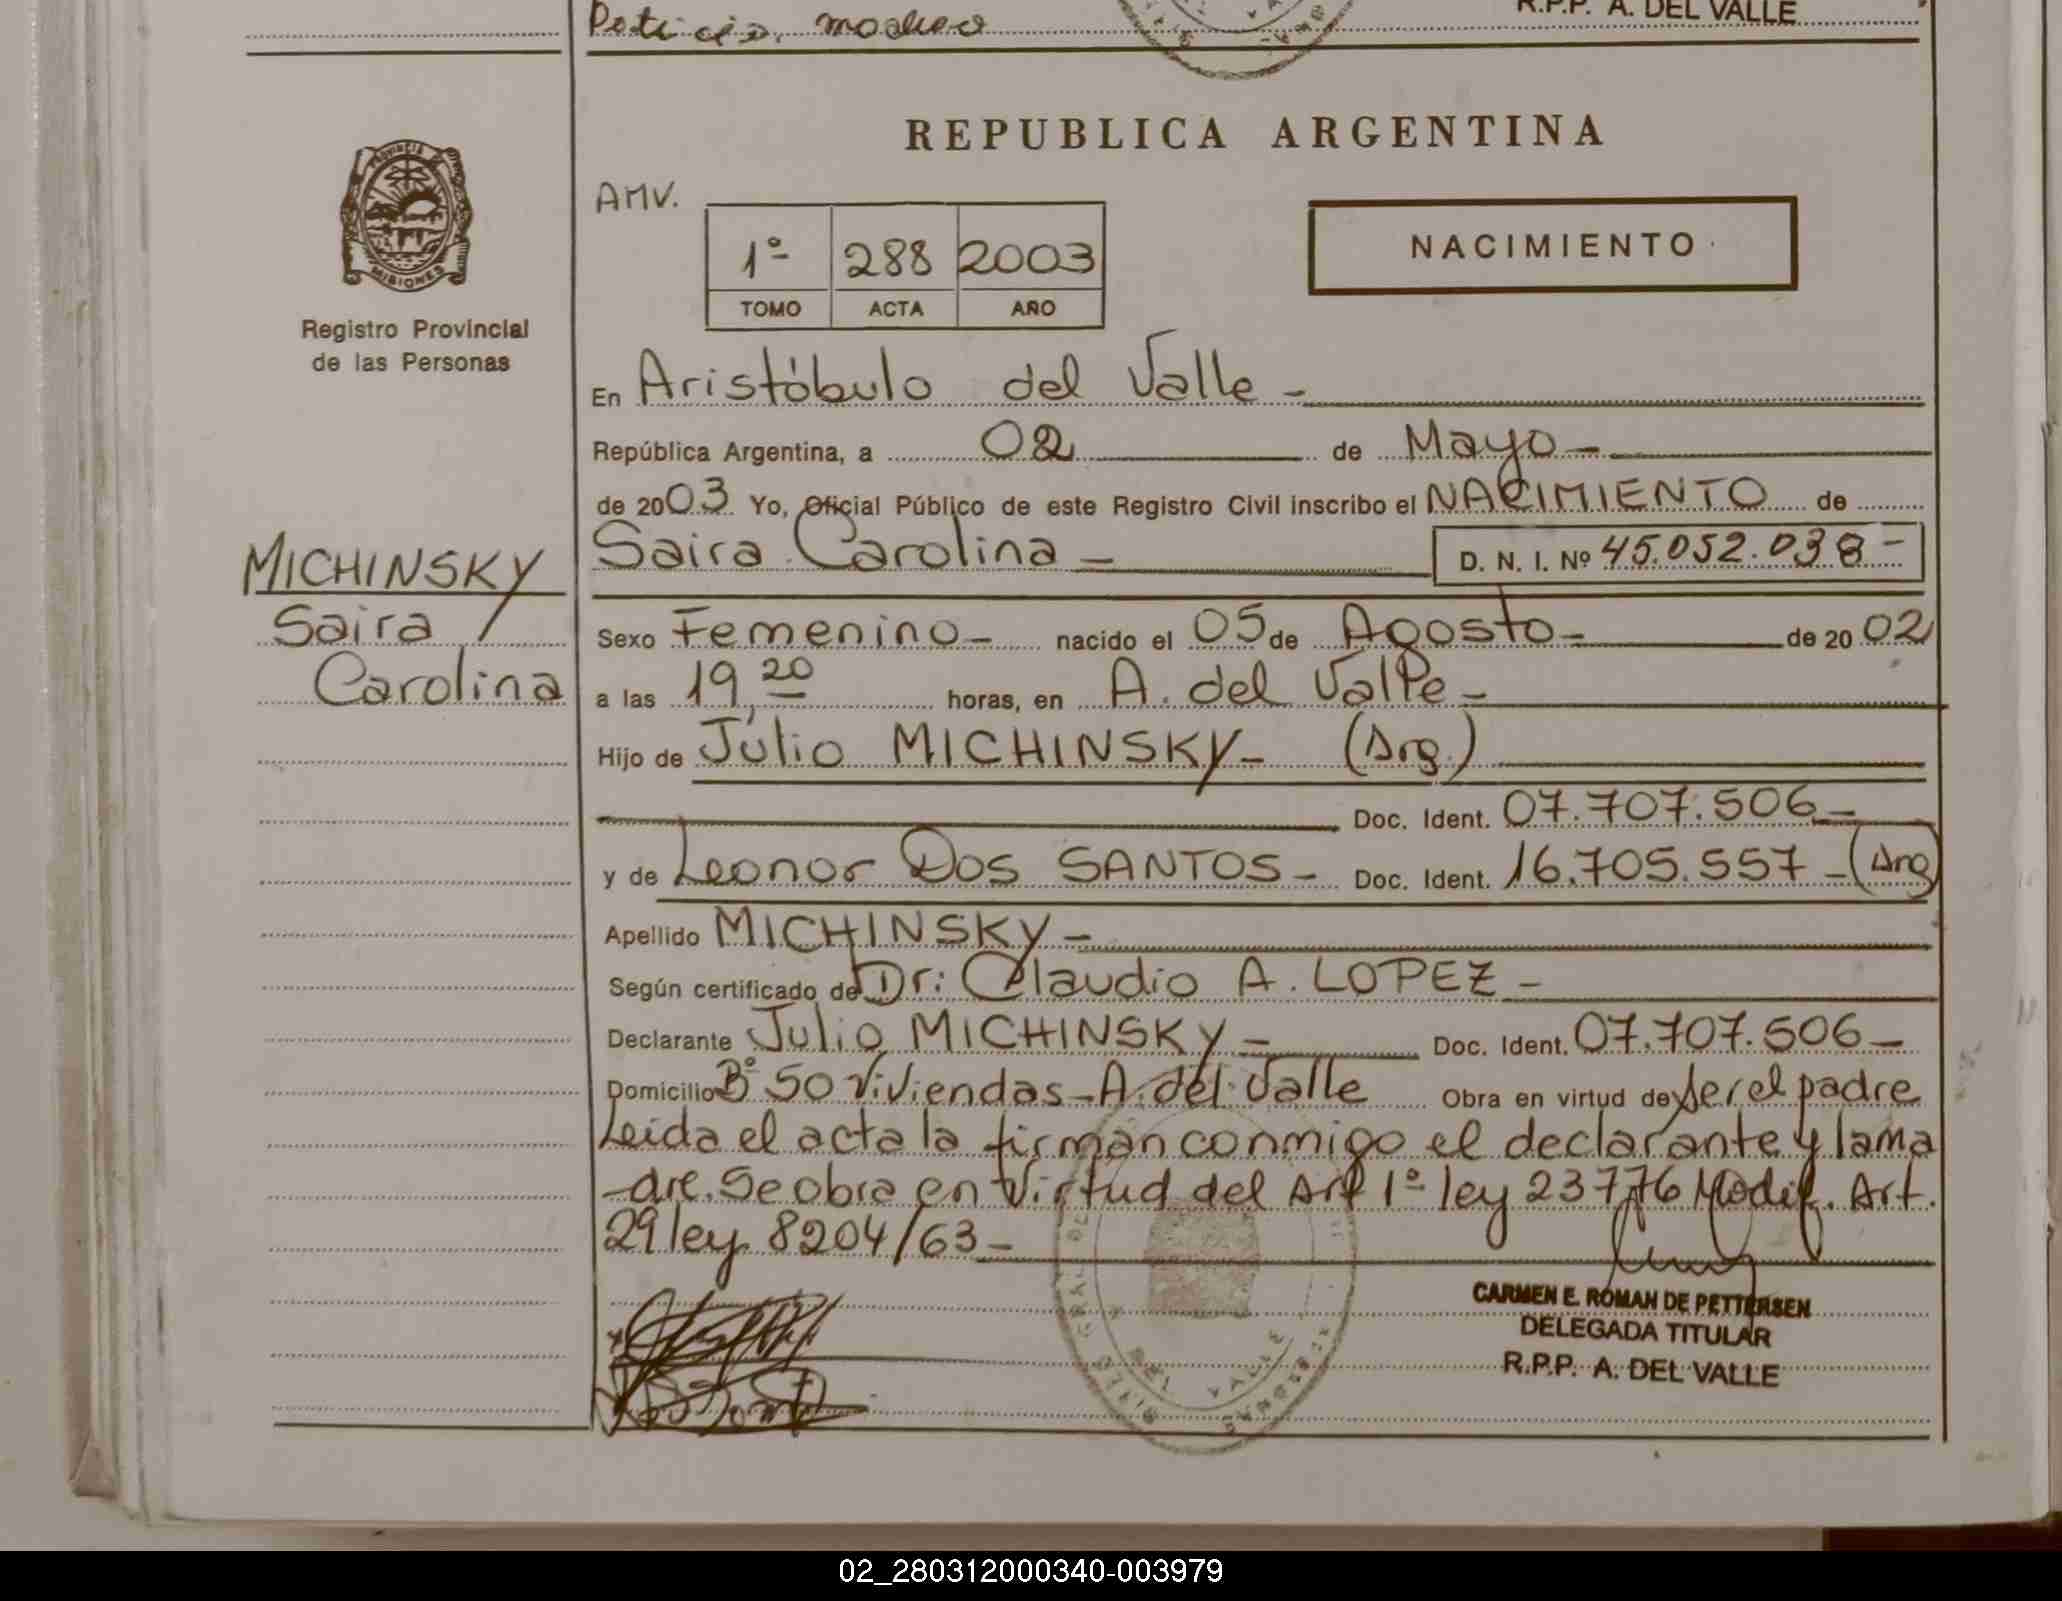 R.P.P. A. DEL VALLE
REPUBLICA ARGENTINA
PROVINCIA DE
MISIONES
Registro Provincial
de las Personas
AMV.
1º 288 2003
TOMO ACTA AÑO
NACIMIENTO
En Aristóbulo del Valle -
República Argentina, a 02 de Mayo -
de 2003 Yo, Oficial Público de este Registro Civil inscribo el NACIMIENTO de
Saira Carolina - D. N. I. Nº 45.052.038 -
MICHINSKY
Saira
Carolina
Sexo Femenino - nacido el 05 de Agosto - de 20 02
a las 19,20 horas, en A. del Valle -
Hijo de Julio MICHINSKY - (Arg.)
Doc. Ident. 07.707.506 -
y de Leonor DOS SANTOS - Doc. Ident. 16.705.557 - (Arg)
Apellido MICHINSKY -
Según certificado de Dr: Claudio A. LOPEZ -
Declarante Julio MICHINSKY - Doc. Ident. 07.707.506 -
Domicilio Bº 50 Viviendas - A. del Valle Obra en virtud de ser el padre
Leida el acta la firman conmigo el declarante y la ma
-dre. Se obra en virtud del Art 1º ley 23776 Modif. Art.
29 ley 8204/63 -
CARMEN E. ROMAN DE PETTERSEN
DELEGADA TITULAR
R.P.P. A. DEL VALLE
DEL VALLE
MISIONES
02_280312000340-003979